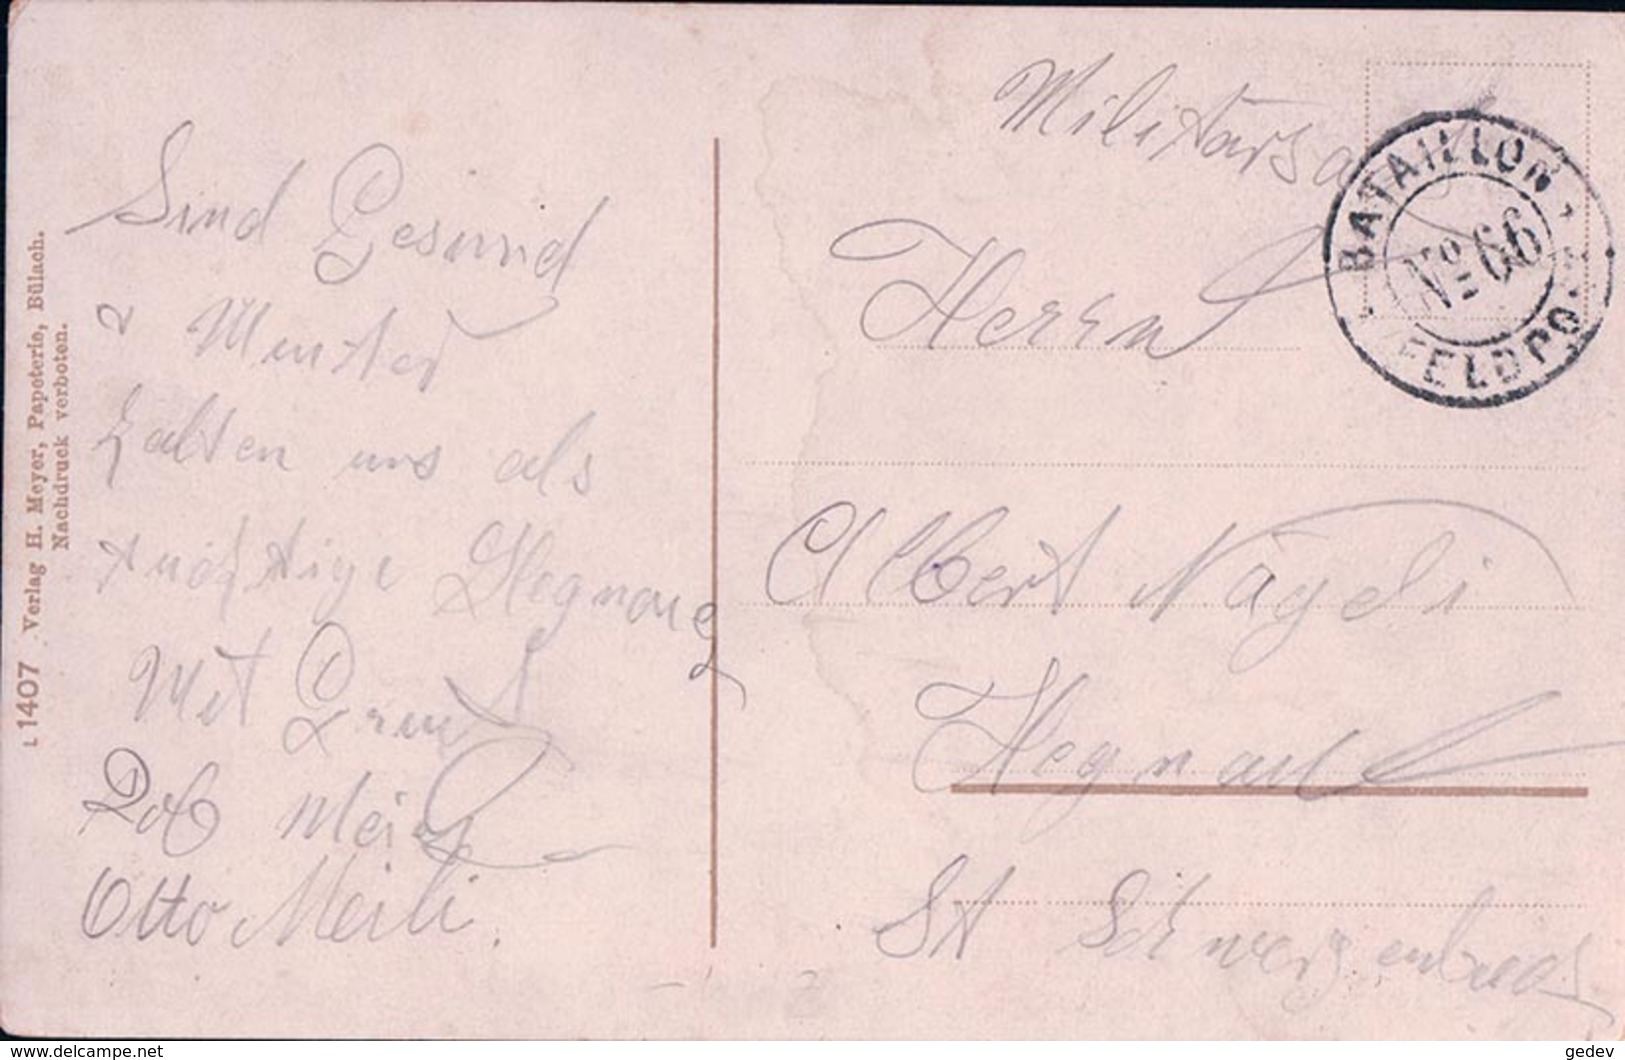 Sind Gesund
u Munter
halten uns als
tüchtige Hegnau
Mit Gruss
Rob Meier
Otto Meili.
Militärsa
Herrn
Albert Nägeli
Hegnau
St Schwerzenbach
BATAILLON
No 66
FELDPOST
L 1407 Verlag H. Meyer, Papeterie, Bülach.
Nachdruck verboten.
https://www.delcampe.net
gedev